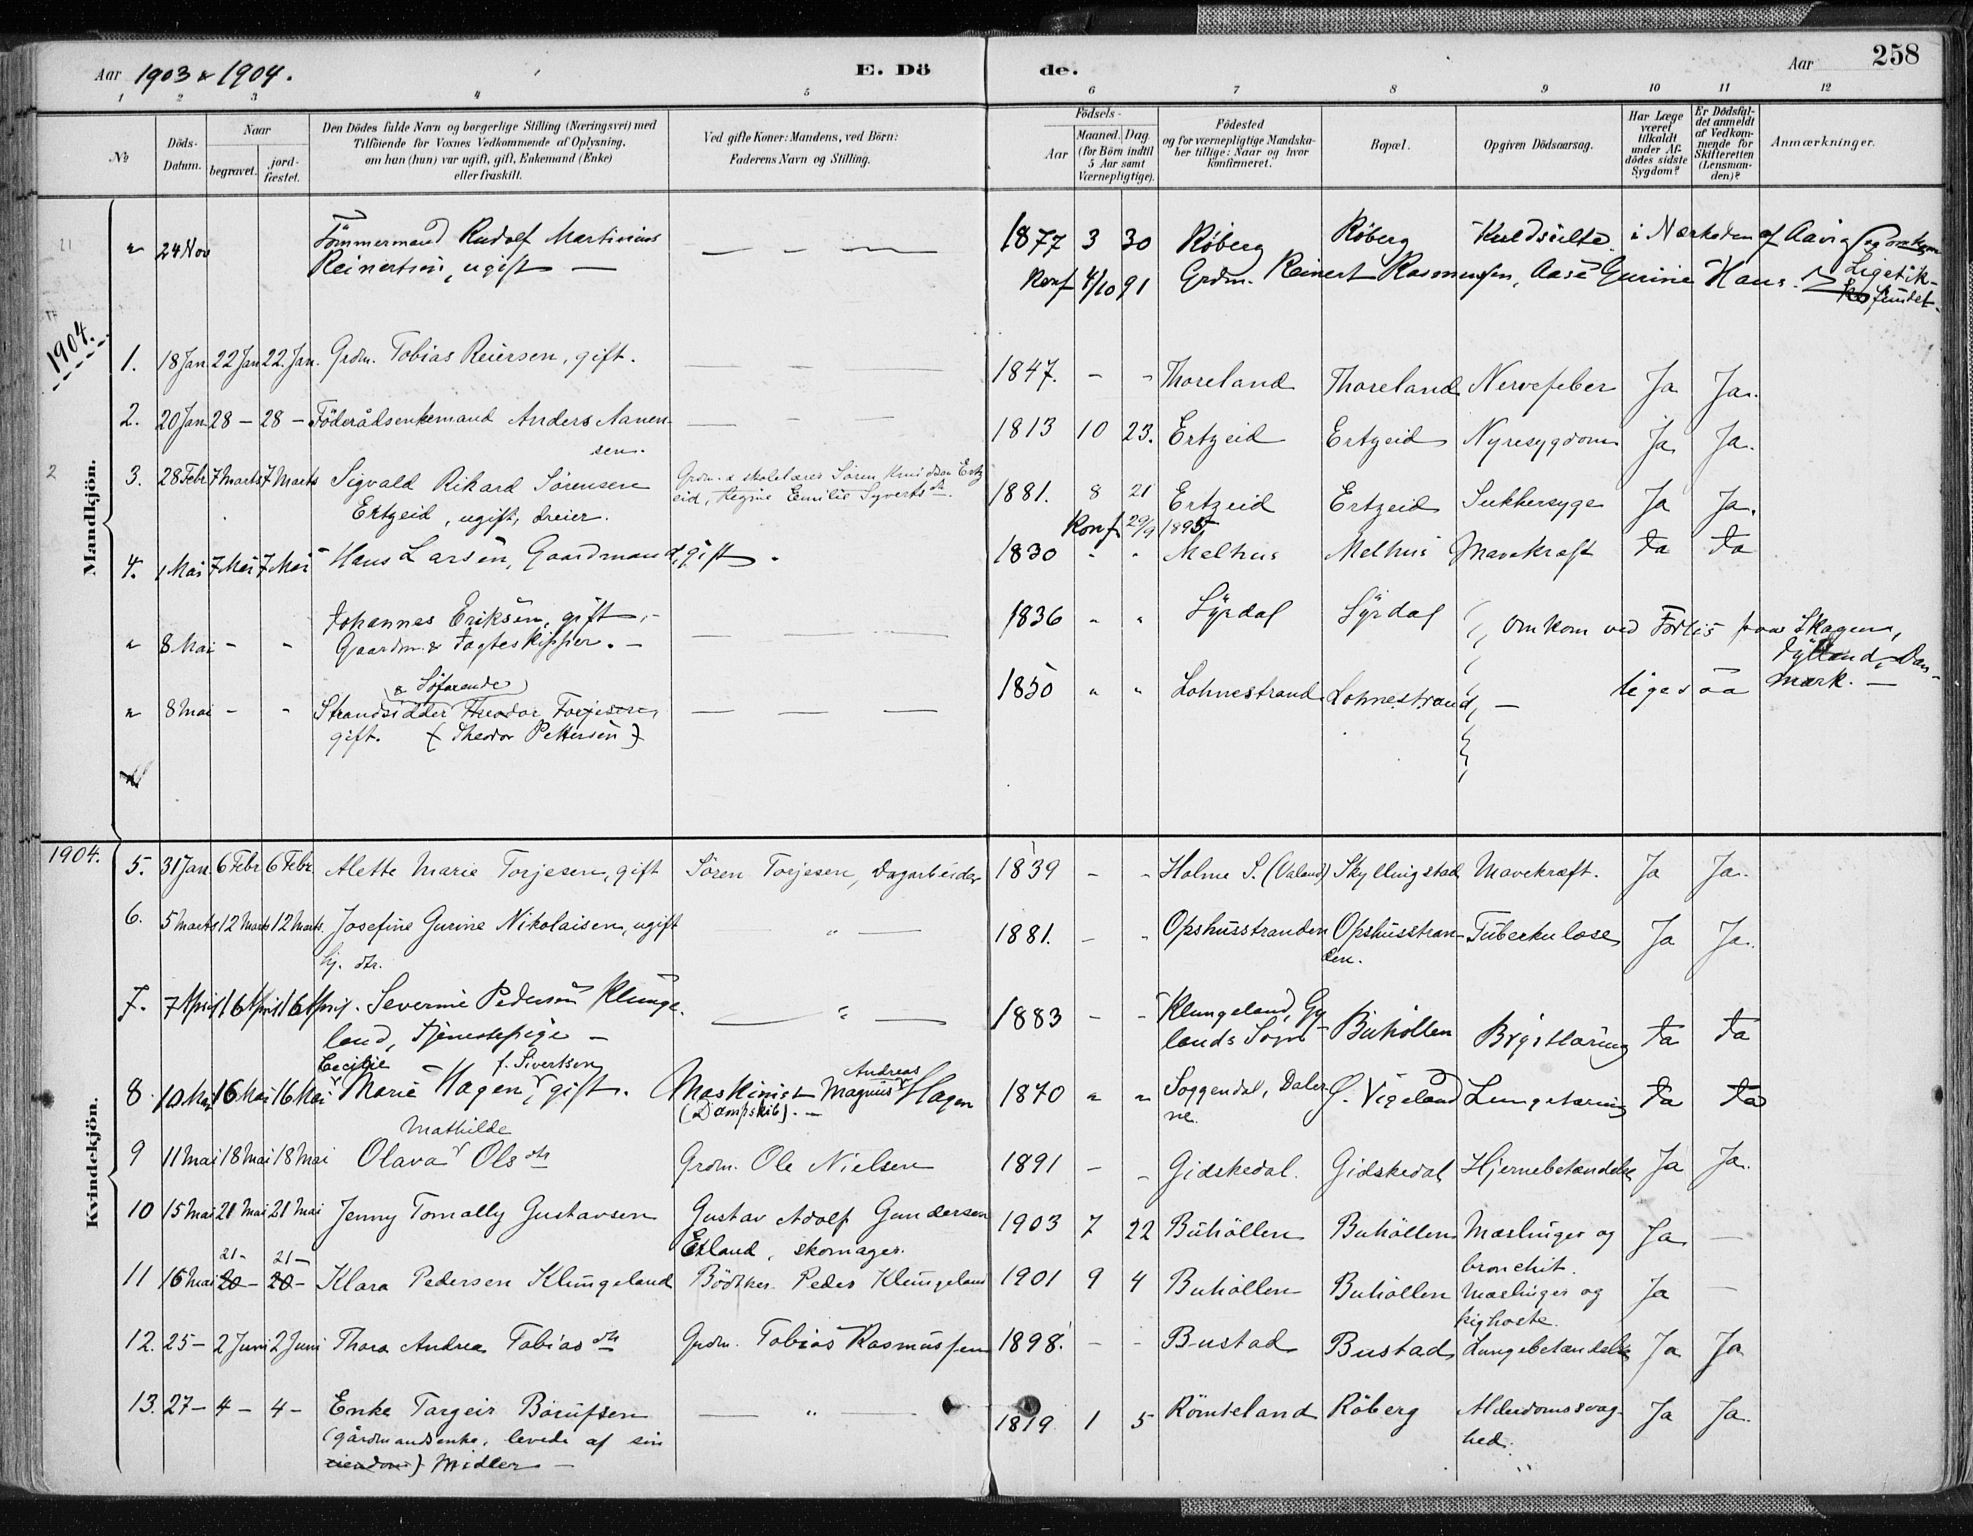 Aar 1903 & 1904. E. Dö de. Aar 258
1 2 3 4 5 6 7 8 9 10 11 12
№ Döds-Datum. Naar begravet. jord-fæstet. Den Dödes fulde Navn og borgerlige Stilling (Næringsvei) med Tilföiende for Voxnes Vedkommende af Oplysning, om han (hun) var ugift, gift, Enkemand (Enke) eller fraskilt. Ved gifte Koner: Mandens, ved Börn: Faderens Navn og Stilling. Födsels- Aar Maaned. Dag. (for Börn indtil 5 Aar samt Værnepligtige). Födested og for værnepligtige Mandska-ber tillige: Naar og hvor konfirmeret. Bopæl. Opgiven Dödsaarsag. Har Læge været tilkaldt under Af-dödes sidste Sygdom? Er Dödsfal-det anmeldt af Vedkom-mende for Skifteretten (Lensman-den)? Anmærkninger.
Mandkjön.
21 " 24 Nov Tömmermand Rudolf Martinius — — — 1877 3 30 Röberg Röberg Kuldseilte i Nærheden af Aavig
Reinertsen, ugift — Konf 4/10 91 Grdm. Reinert Rasmussen, Aase Gurine Hans. Liget ik-
ke fundet.
1904.
1. 18 Jan 22 Jan 22. Jan. Grdm. Tobias Reiersen, gift. — — — 1847. - - Thoreland Thoreland Nervefeber Ja Ja.
2. 20 Jan 28 — 28 — Föderådsenkemand Anders Aanen- — - — 1813 10 23. Ertzeid Ertzeid Nyresygdom Ja Ja.
sen.
2 3. 28 Febr 7 Marts 7 Marts Sigvald Rikard Sörensen Grdm. & skolelærer Sören Knudsen Ertz 1881. 8 21 Ertzeid Ertzeid Sukkersyge Ja Ja.
Ertzeid, ugift, dreier. eid, Regine Emilie Syverts dtr. Konf 29/9 1895
4. 1 Mai 7 Mai 7 Mai Hans Larsen, Gaardmand, gift. 1830 " " Melhus Melhus Mavekræft Ja Ja
" 8 Mai - " Johannes Eriksen, gift, — — — — 1836 " " Syrdal Syrdal Omkom ved Forlis paa Skagen,
Gaardm. & Jagteskipper. — Jylland, Dan-
mark. —
& Söfarende
" 8 Mai - " Strandsidder Theodor Torjesen, — — — 1850 " " Lohnestrand Lohnestrand, — ligesaa
gift. (Theodor Pettersen)
Kvindekjön.
1904. 5. 31 Jan 6 Febr 6 Febr Alette Marie Torjesen, gift Sören Torjesen, Dagarbeider 1839 - - Holme S. (Valand) Skyllingstad Mavekræft. Ja Ja.
6. 5 Marts 12 Marts 12 Marts. Josefine Gurine Nikolaisen, ugift — " — 1881. - - Opshusstranden Opshusstran- Tuberkulose Ja Ja.
hj. dtr. den.
7. 7 April 16 April 16 April. Severine Pedersen Klunge- — " — 1883 - - Klungeland, Gy- Buhöllen Brysttæring Ja Ja
land, Tjenestepige — lands Sogn
Cecilie f. Sivertsen Andreas
8. 10 Mai 16 Mai 16 Mai Marie Hagen, gift. Maskinist Magnus Hagen 1870 " " Soggendal, Daler- S. Vigeland Lungetæring Ja Ja
(Dampskib). — ne.
Mathilde
9 11 Mai 18 Mai 18 Mai Olava Ols dtr Grdm. Ole Nielsen 1891 - - Gidskedal. Gidskedal Hjernebetændelse Ja Ja.
10 15 Mai 21 Mai 21 Mai Jenny Tomally Gustavsen Gustav Adolf Gundersen 1903 7 22 Buhöllen Buhöllen Mæslinger og Ja —
Exland, skomager. bronchit.
21 - 21 -
11 16 Mai 20 - 20 - Klara Pedersen Klungeland Bödker Peder Klungeland 1901 9 4 Buhöllen Buhöllen Mæslinger og Ja —
kighoste.
12. 25 — 2 Juni 2 Juni Thora Andrea Tobias dtr Grdm. Tobias Rasmussen 1898. - - Bustad Bustad Lungebetændelse Ja Ja
13. 27 — 4 — 4 — Enke Targeir Börufsen — " — 1819 1 5 Römteland Röberg Alderdomssvag- Ja Ja.
(gårdmandsenke, levede af sin hed.
eiendom) Midler —